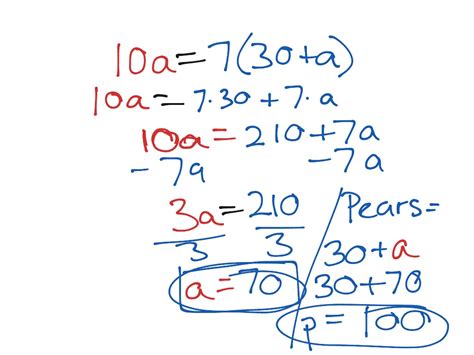 10a=7(30+a)
10a=7·30+7·a
10a=210+7a
-7a -7a
3a=210
3 3
a=70
Pears=
30+a
30+70
p=100